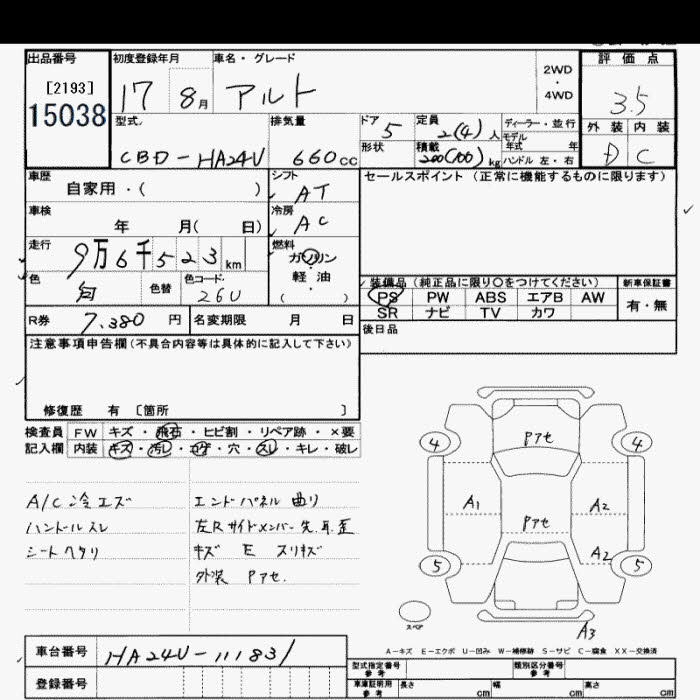 出品番号 初度登録年月 車名・グレード 評価点
[2193]
15038
17 8月 アルト
2WD
・
4WD
3.5
型式 排気量 ドア 定員 ディーラー・並行
CBD-HA24V 660cc 5 2(4)人 モデル年式 年
形状 積載 200(100)kg ハンドル 左・右
外装 内装
D C
車歴 自家用・( )
シフト AT
セールスポイント (正常に機能するものに限ります)
車検 年 月( 日)
冷房 AC
走行 9万6千523km
燃料 ガソリン
軽油
( )
色 白 色替 色コード 26U
装備品 (純正品に限り○をつけてください) 新車保証書
PS PW ABS エアB AW 有・無
SR ナビ TV カワ
R券 7,380円 名変期限 月 日
後日品
注意事項申告欄(不具合内容等は具体的に記入して下さい)
修復歴 有 [箇所 ]
検査員 FW キズ・飛石・ヒビ割・リペア跡・×要
記入欄 内装 キズ・汚レ・コゲ・穴・スレ・キレ・破レ
A/C冷エズ エンドパネル曲リ
ハンドルスレ 左Rサイドメンバー先.耳.歪
シートヘタリ キズ E スリキズ
外装 Pアセ.
Pアセ
4 4
A1 A2
Pアセ
A2
5 5
スペア
A3
A-キズ E-エクボ U-凹み W-補修跡 S-サビ C-腐食 XX-交換済
車台番号 HA24V-111831
登録番号
型式指定番号 参考 類別区分番号 参考
車庫証明用 参考 長さ cm 幅 cm 高さ cm